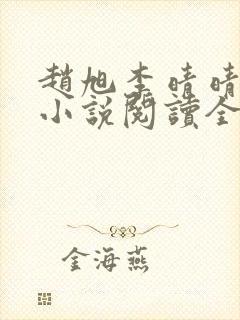 趙旭李晴晴
小說閱讀全
金海燕